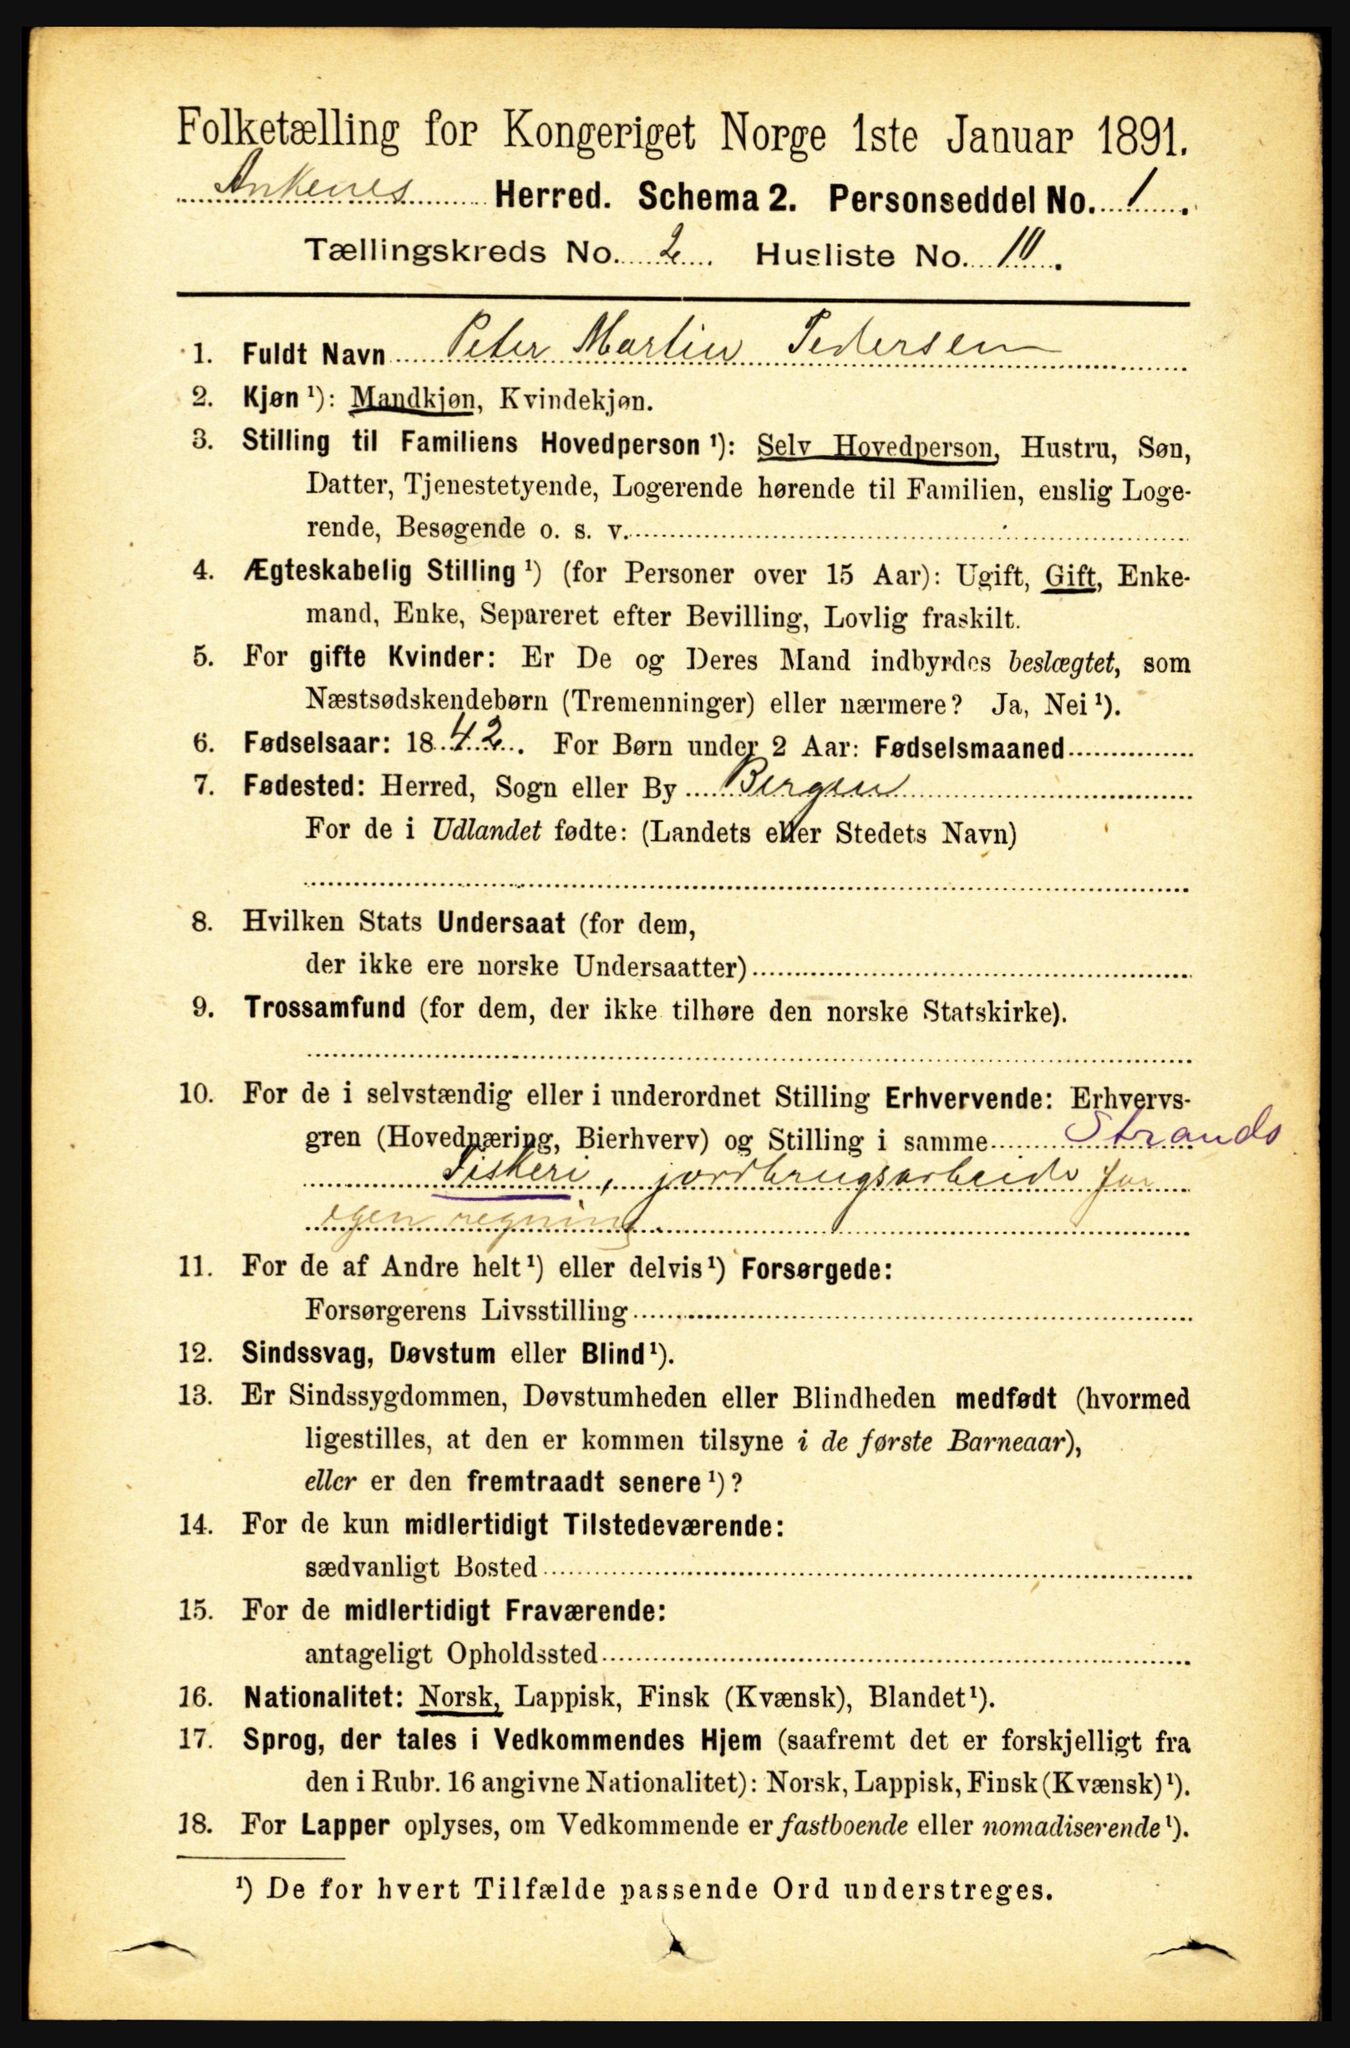 Folketælling for Kongeriget Norge 1ste Januar 1891.
Ankenes Herred. Schema 2. Personseddel No. 1.
Tællingskreds No. 2. Husliste No. 10.
1. Fuldt Navn Peter Martin Pedersen
2. Kjøn ¹): Mandkjøn, Kvindekjøn.
3. Stilling til Familiens Hovedperson ¹): Selv Hovedperson, Hustru, Søn,
Datter, Tjenestetyende, Logerende hørende til Familien, enslig Loge-
rende, Besøgende o. s. v.
4. Ægteskabelig Stilling ¹) (for Personer over 15 Aar): Ugift, Gift, Enke-
mand, Enke, Separeret efter Bevilling, Lovlig fraskilt.
5. For gifte Kvinder: Er De og Deres Mand indbyrdes beslægtet, som
Næstsødskendebørn (Tremenninger) eller nærmere? Ja, Nei ¹).
6. Fødselsaar: 1842. For Børn under 2 Aar: Fødselsmaaned
7. Fødested: Herred, Sogn eller By Bergen
For de i Udlandet fødte: (Landets eller Stedets Navn)
8. Hvilken Stats Undersaat (for dem,
der ikke ere norske Undersaatter)
9. Trossamfund (for dem, der ikke tilhøre den norske Statskirke).
10. For de i selvstændig eller i underordnet Stilling Erhvervende: Erhvervs-
gren (Hovednæring, Bierhverv) og Stilling i samme Strands
Fiskeri, jordbrugsarbeide for
egen regning.
11. For de af Andre helt ¹) eller delvis ¹) Forsørgede:
Forsørgerens Livsstilling
12. Sindssvag, Døvstum eller Blind ¹).
13. Er Sindssygdommen, Døvstumheden eller Blindheden medfødt (hvormed
ligestilles, at den er kommen tilsyne i de første Barneaar),
eller er den fremtraadt senere ¹)?
14. For de kun midlertidigt Tilstedeværende:
sædvanligt Bosted
15. For de midlertidigt Fraværende:
antageligt Opholdssted
16. Nationalitet: Norsk, Lappisk, Finsk (Kvænsk), Blandet ¹).
17. Sprog, der tales i Vedkommendes Hjem (saafremt det er forskjelligt fra
den i Rubr. 16 angivne Nationalitet): Norsk, Lappisk, Finsk (Kvænsk) ¹).
18. For Lapper oplyses, om Vedkommende er fastboende eller nomadiserende ¹).
¹) De for hvert Tilfælde passende Ord understreges.